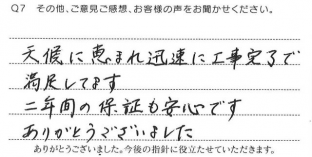 Q7 その他、ご意見ご感想、お客様の声をお聞かせください。
天候に恵まれ迅速に工事完了で
満足してます
二年間の保証も安心です
ありがとうございました
ありがとうございました。今後の指針に役立たせていただきます。